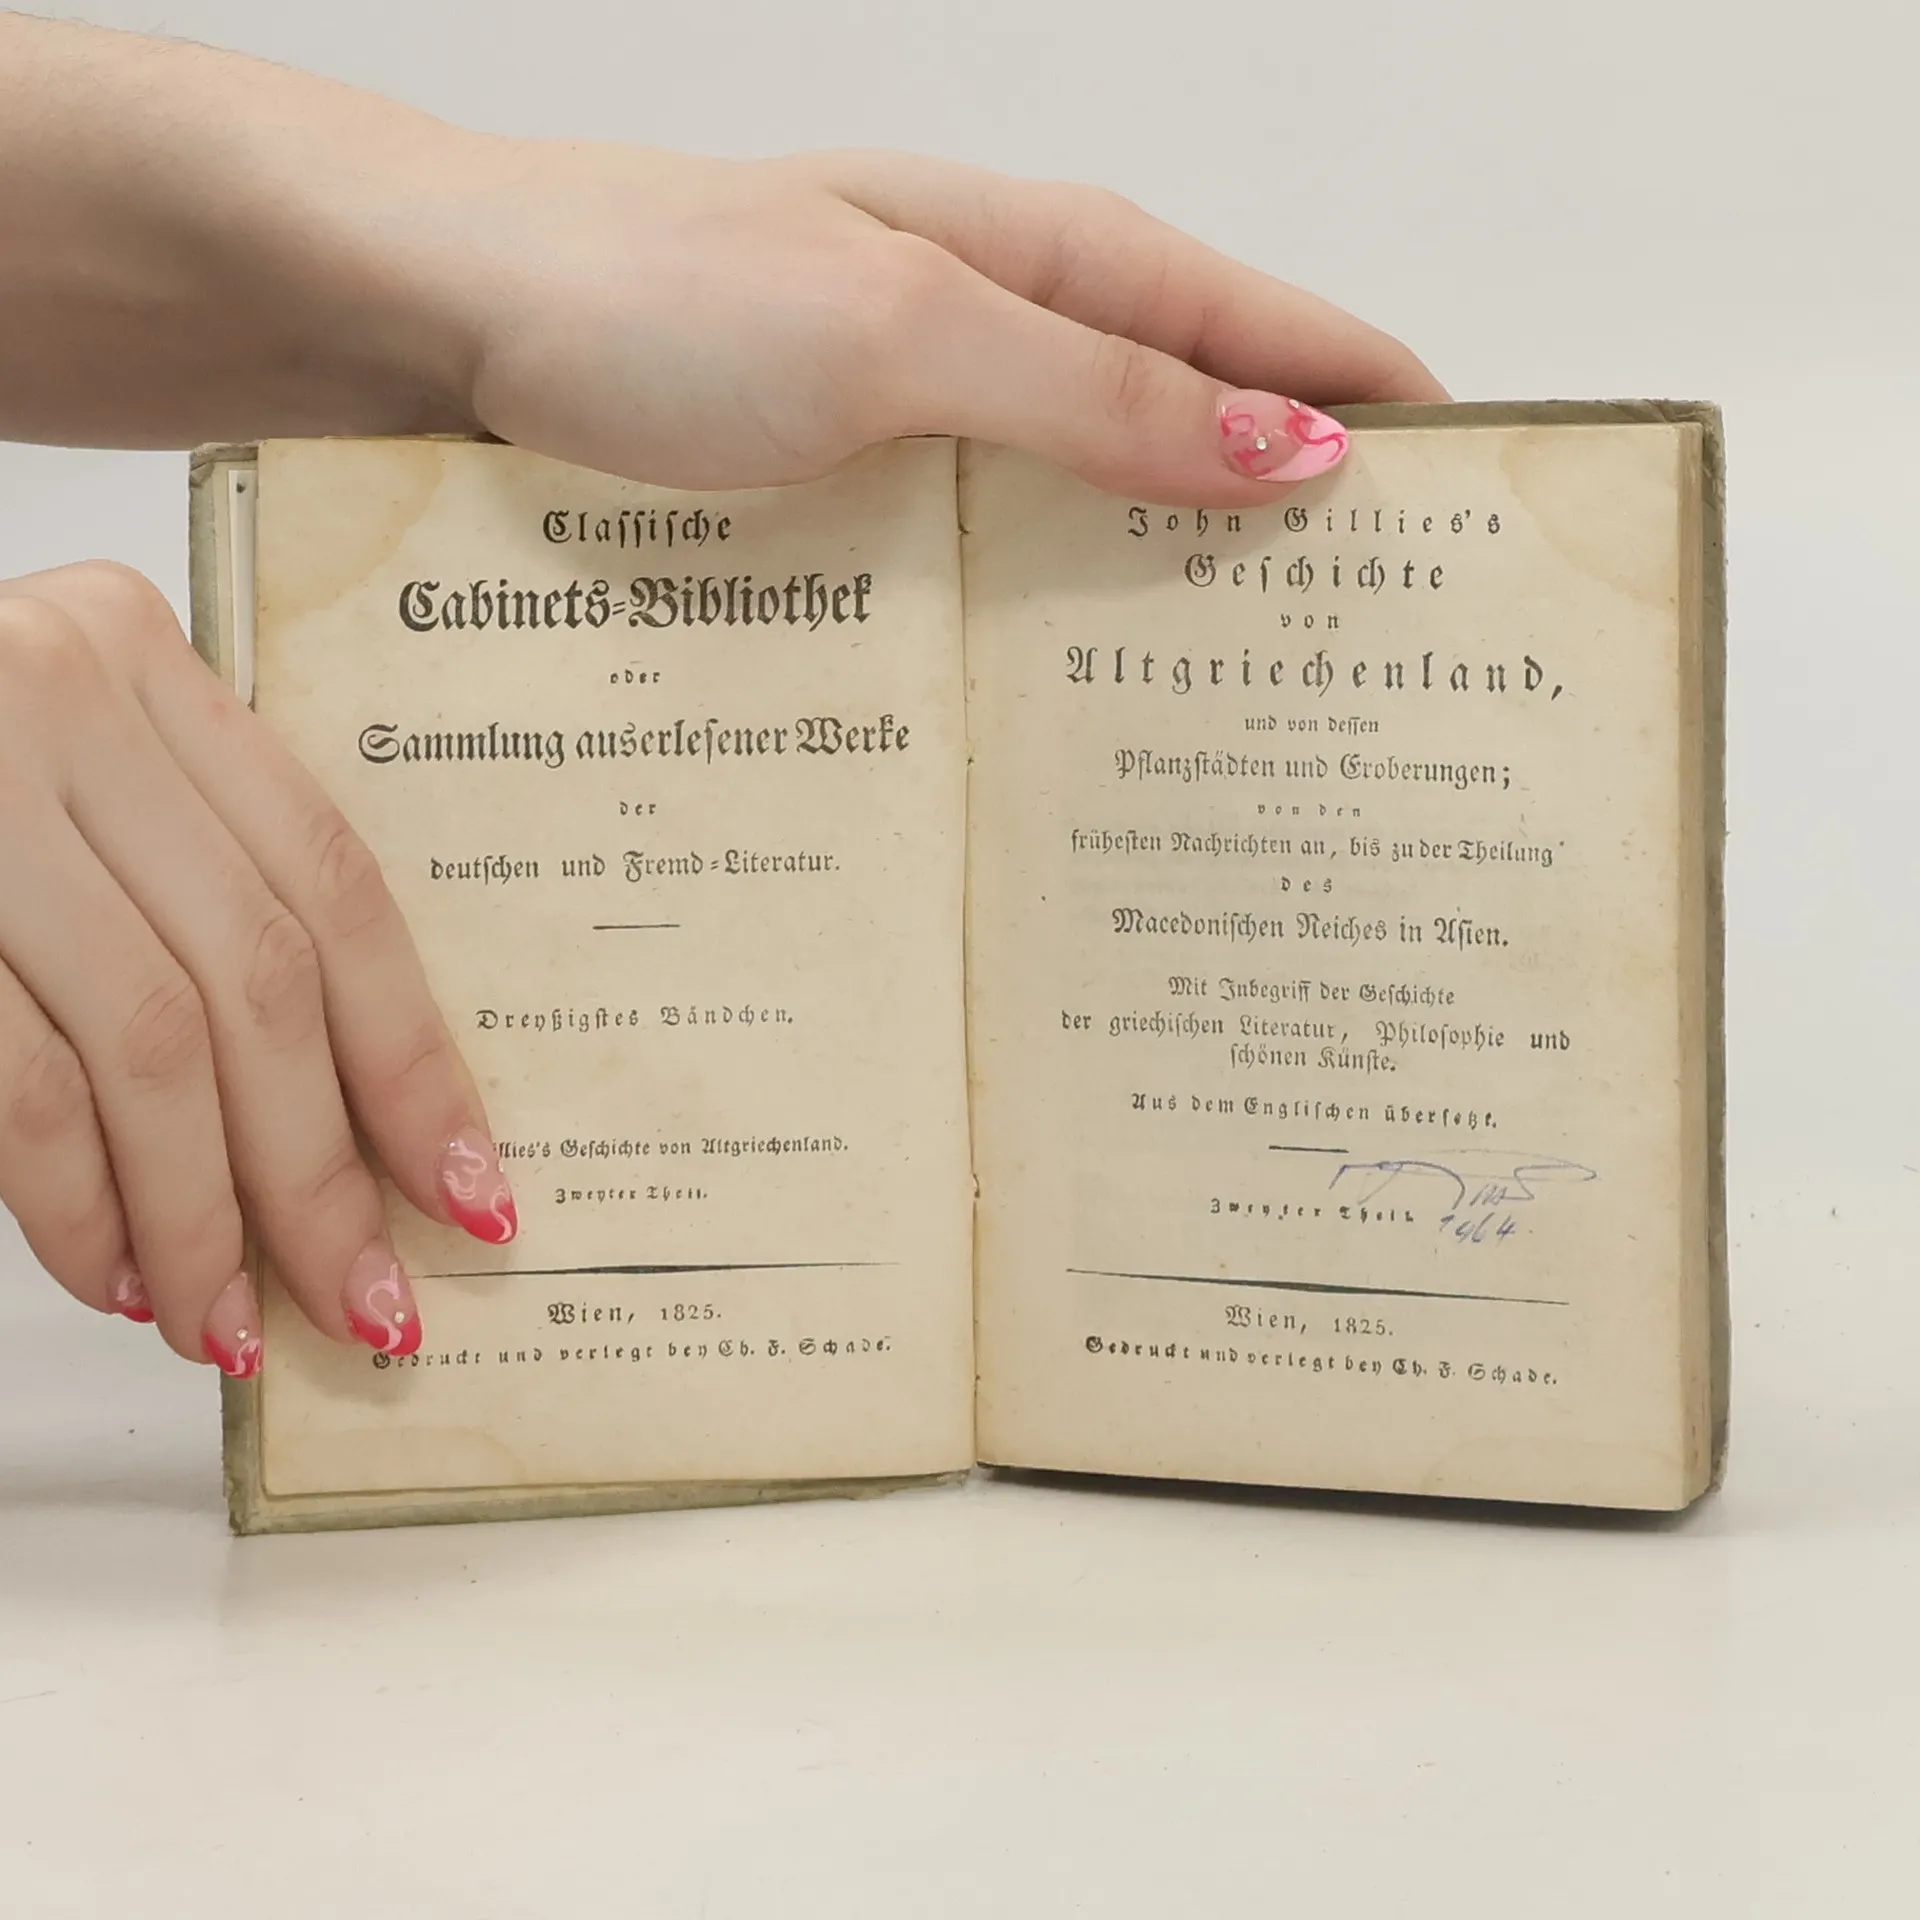 Classische
Cabinets-Bibliothek
oder
Sammlung auserlesener Werke
der
deutschen und Fremd-Literatur.
Dreyßigstes Bändchen.
illies's Geschichte von Altgriechenland.
Zweyter Theil.
Wien, 1825.
Gedruckt und verlegt bey Ch. F. Schade.
John Gillies's
Geschichte
von
Altgriechenland,
und von dessen
Pflanzstädten und Eroberungen;
von den
frühesten Nachrichten an, bis zu der Theilung
des
Macedonischen Reiches in Asien.
Mit Inbegriff der Geschichte
der griechischen Literatur, Philosophie und
schönen Künste.
Aus dem Englischen übersetzt.
Zweyter Theil.
1964.
Wien, 1825.
Gedruckt und verlegt bey Ch. F. Schade.